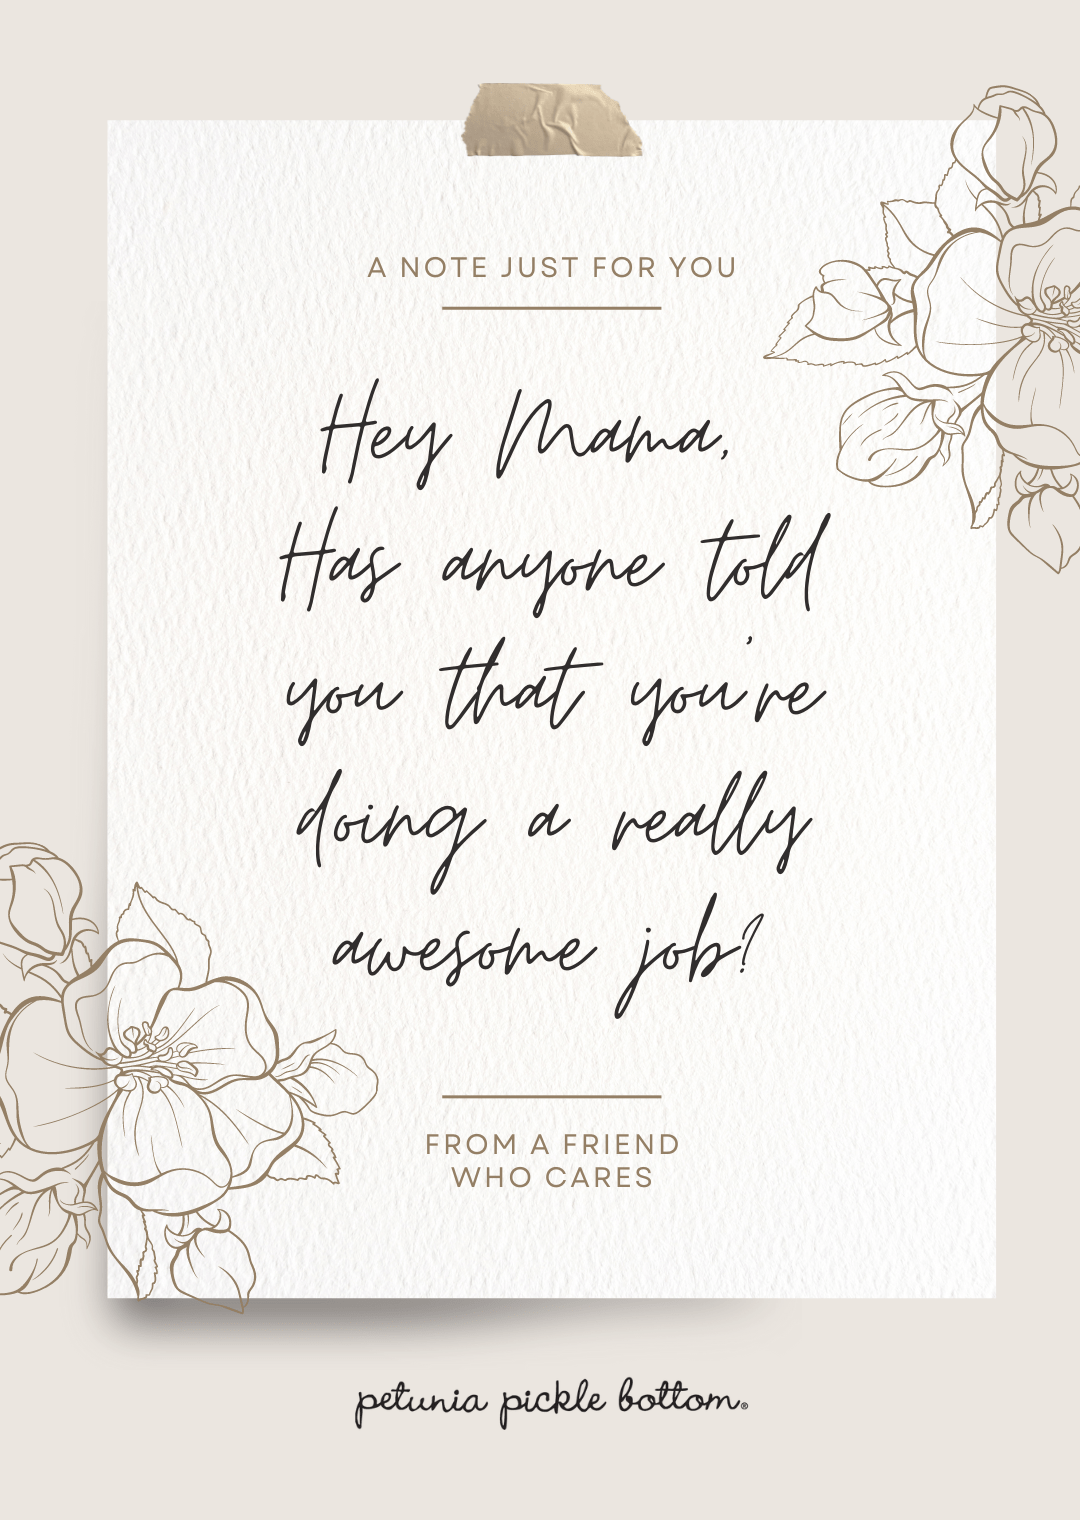 A NOTE JUST FOR YOU
Hey Mama,
Has anyone told
you that you're
doing a really
awesome job?
FROM A FRIEND
WHO CARES
petunia pickle bottom®